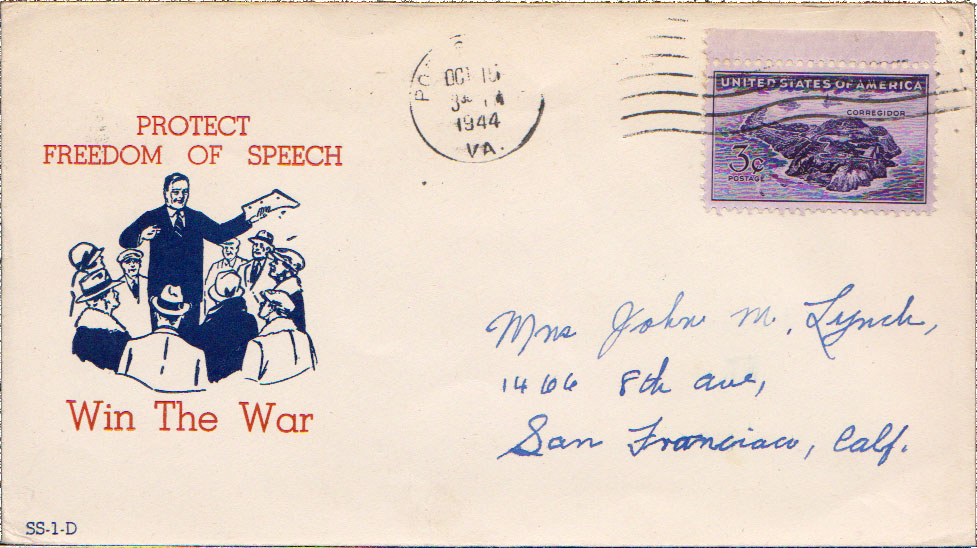 OCT 15
1944
VA.
UNITED STATES OF AMERICA
CORREGIDOR
3¢
POSTAGE
PROTECT
FREEDOM OF SPEECH
Win The War
Mrs John M. Lynch,
1466 8th ave,
San Francisco, Calf.
SS-1-D